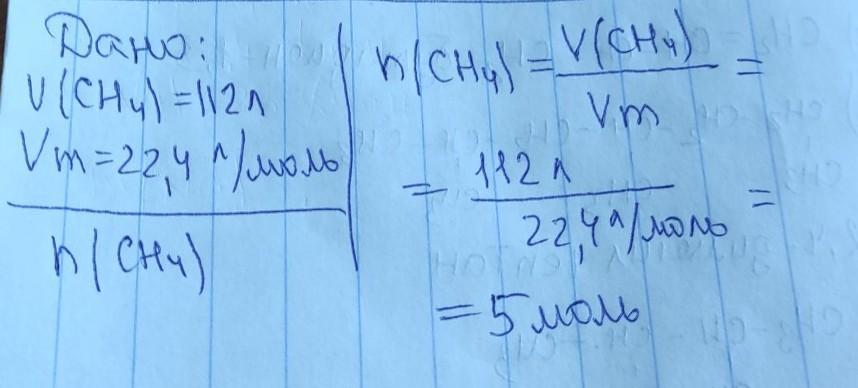 Дано:
V(CH4) = 112 л
Vm = 22,4 л/моль
n(CH4)
n(CH4) = V(CH4) / Vm =
= 112 л / 22,4 л/моль =
= 5 моль